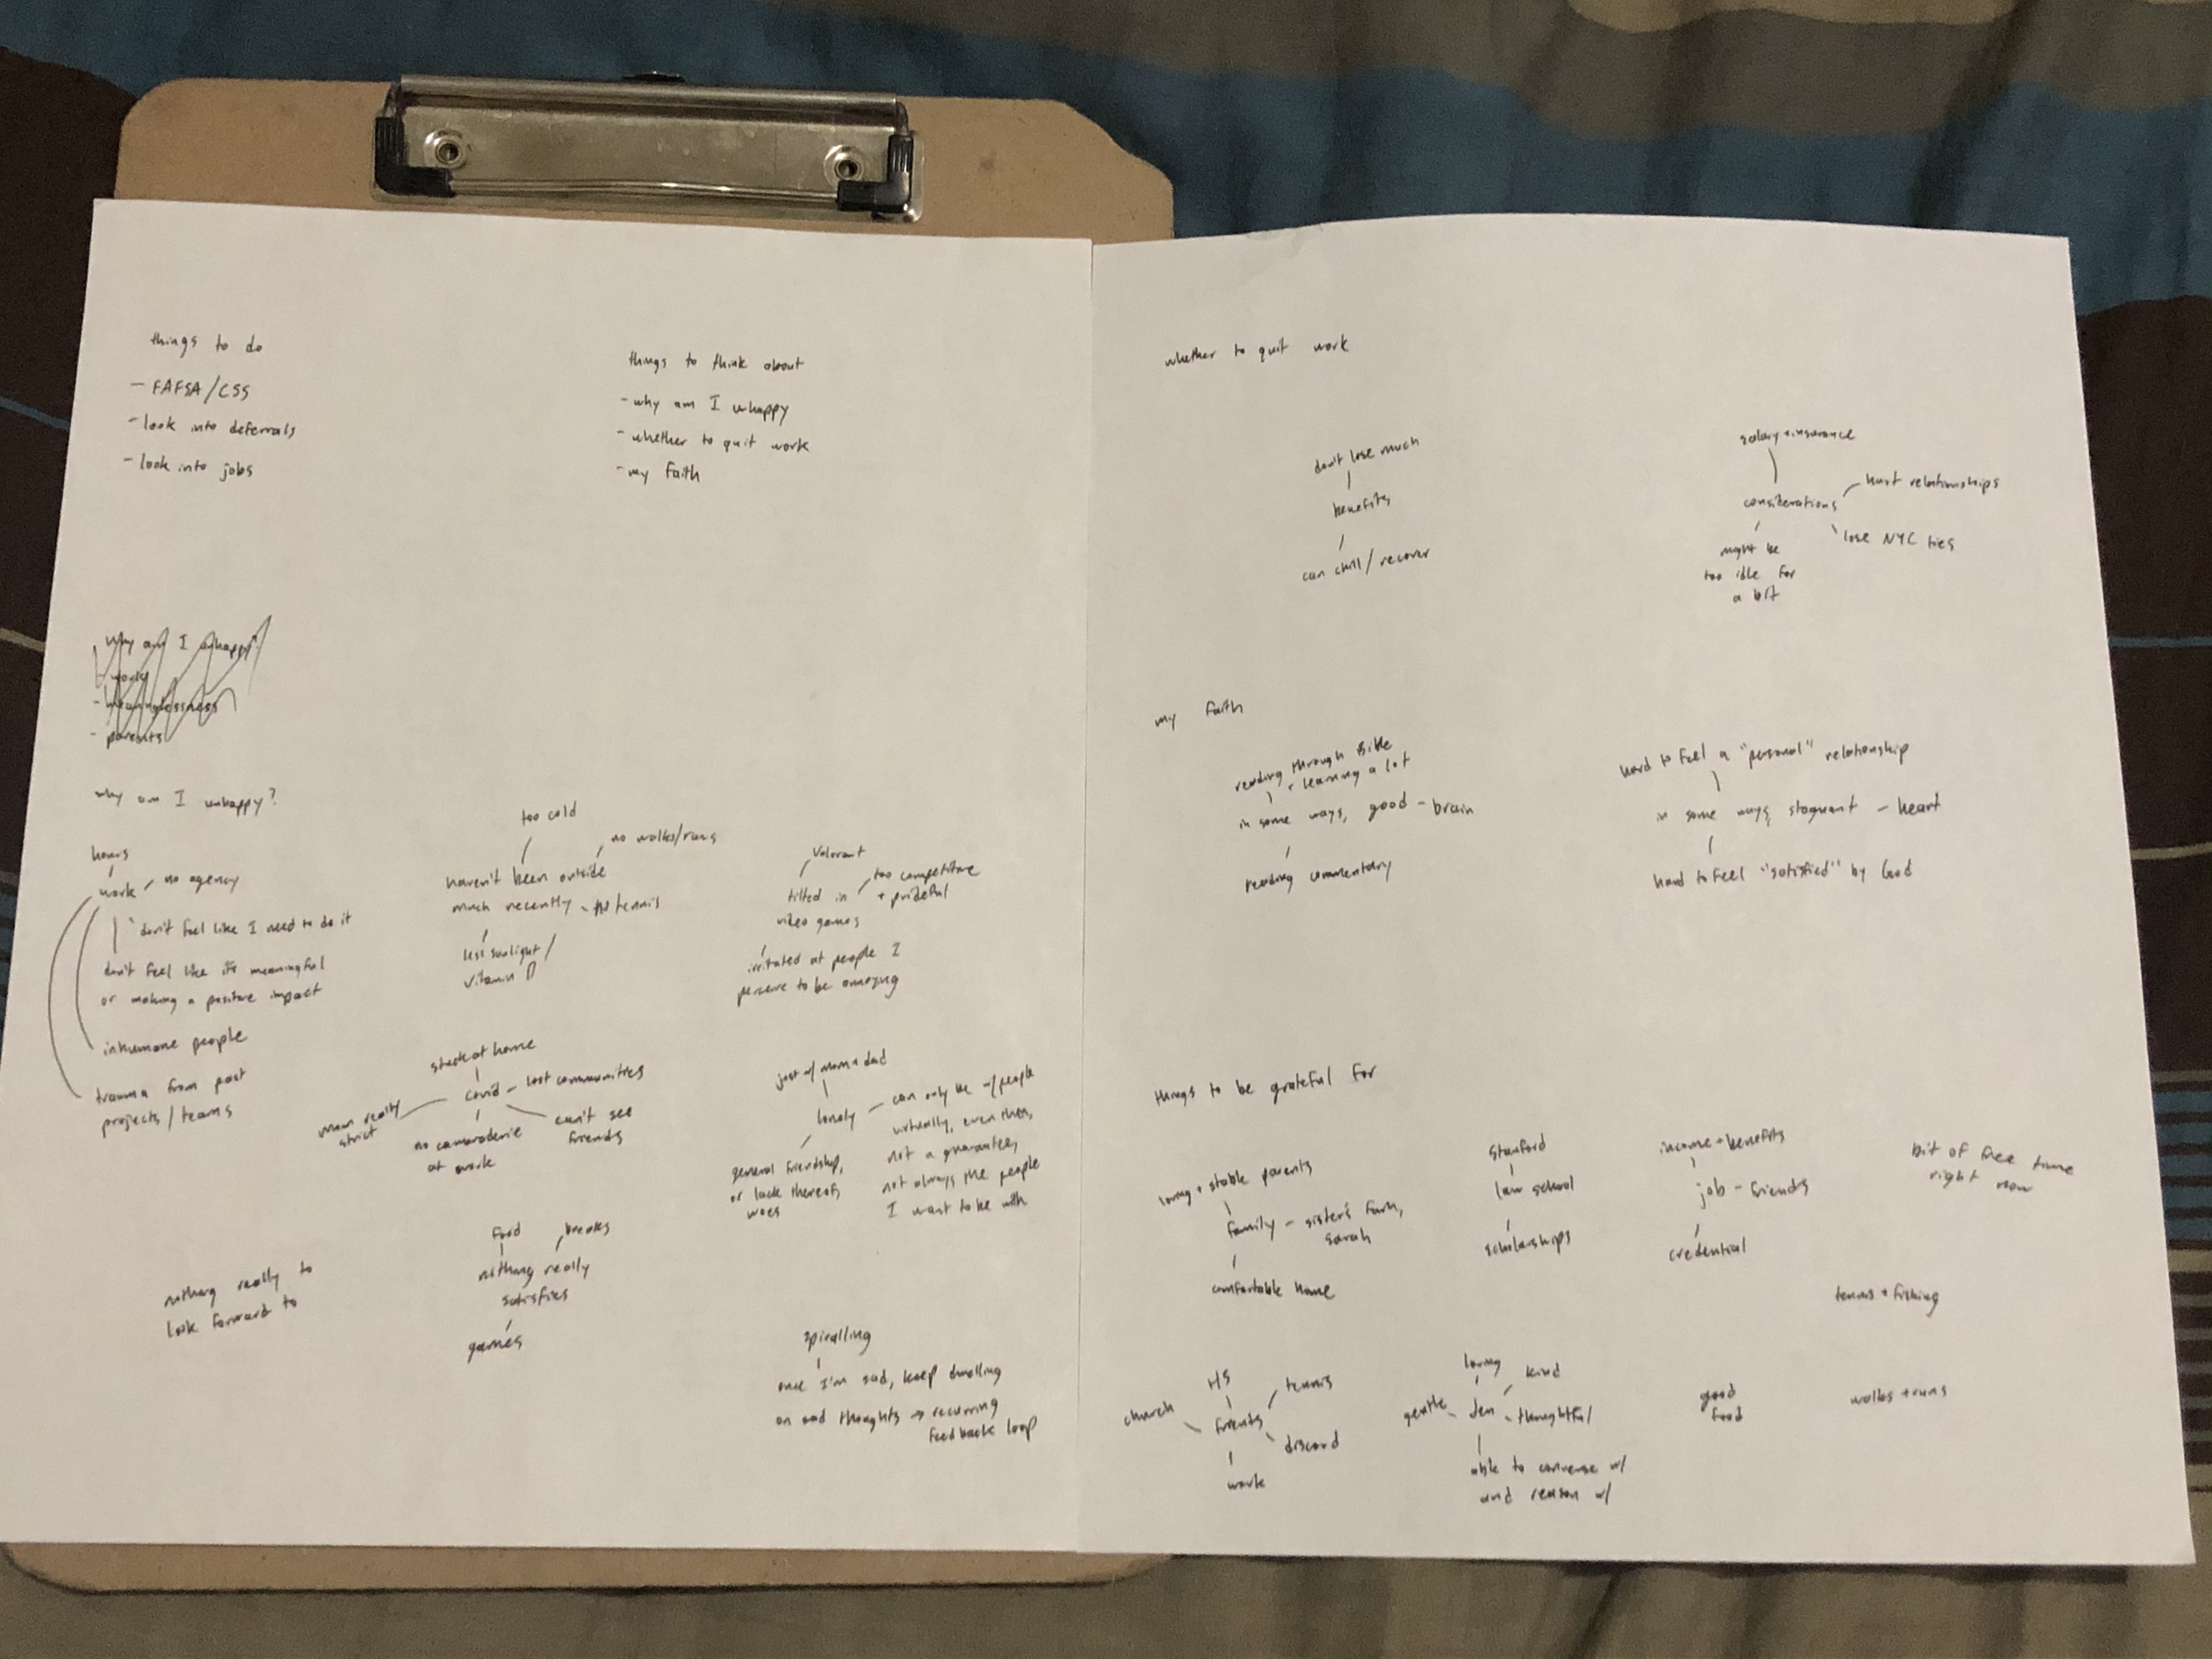 things to do
- FAFSA/CSS
- look into deferrals
- look into jobs
things to think about
- why am I unhappy
- whether to quit work
- my faith
why am I unhappy?
- work
- meaninglessness
- parents
why am I unhappy?
hours
work
no agency
don't feel like I need to do it
don't feel like it's meaningful
or making a positive impact
inhumane people
trauma from past
projects/teams
too cold
no walks/runs
haven't been outside
much recently
no tennis
less sunlight/
vitamin D
Valorant
too competitive
+ prideful
tilted in
video games
irritated at people I
perceive to be annoying
stuck at home
covid - lost communities
mom really
strict
no camaraderie
at work
can't see
friends
just w/ mom + dad
lonely
can only be w/ people
virtually, even then,
not a guarantee,
not always the people
I want to be with
general friendship,
or lack thereof,
woes
nothing really to
look forward to
food
breaks
nothing really
satisfies
games
spiralling
once I'm sad, keep dwelling
on sad thoughts → recurring
feedback loop
whether to quit work
don't lose much
benefits
can chill/recover
salary + insurance
considerations
hurt relationships
lose NYC ties
might be
too idle for
a bit
my faith
reading through Bible
+ learning a lot
in some ways, good - brain
reading commentary
hard to feel a "personal" relationship
in some ways, stagnant - heart
hard to feel "satisfied" by God
things to be grateful for
loving + stable parents
family - sister's fam,
sarah
comfortable home
Stanford
law school
scholarships
income + benefits
job - friends
credential
bit of free time
right now
tennis + fishing
HS
church
friends
tennis
discord
work
loving
kind
gentle
Jen
thoughtful
able to converse w/
and reason w/
good
food
walks + runs